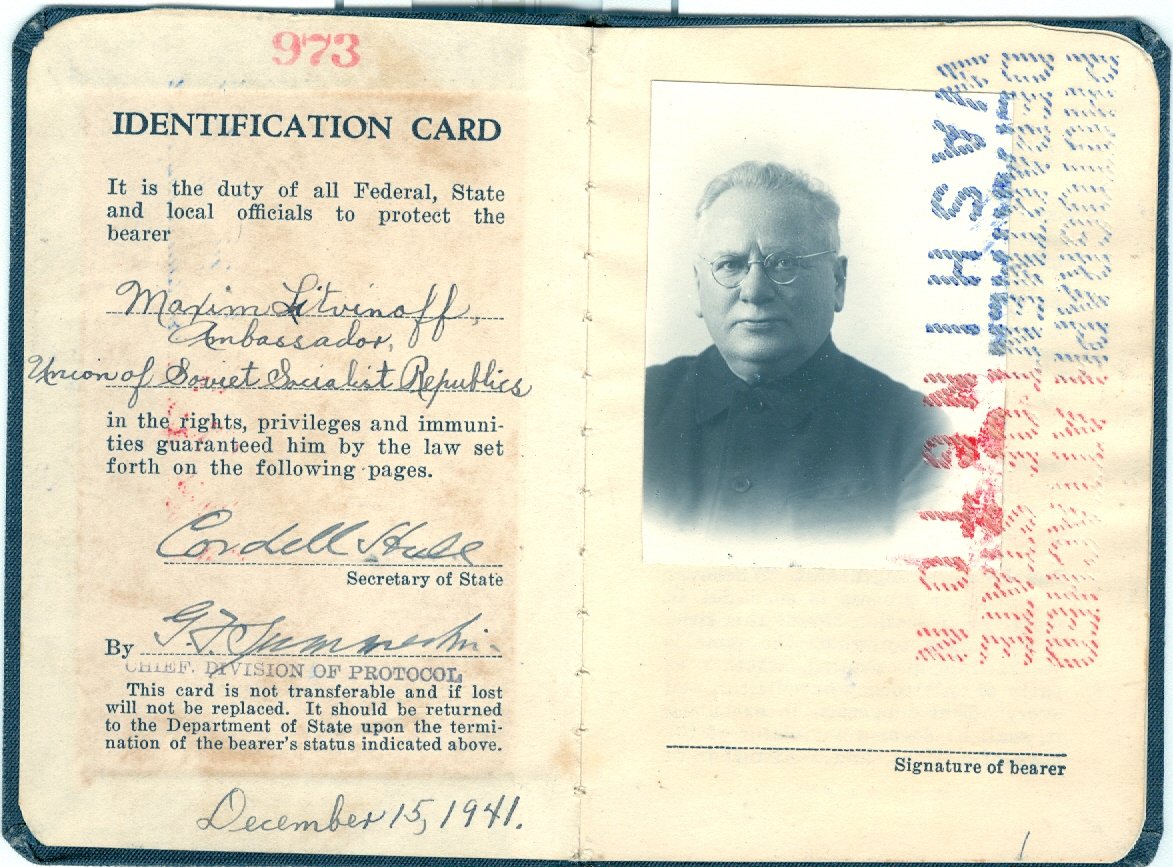 973
IDENTIFICATION CARD
It is the duty of all Federal, State
and local officials to protect the
bearer
Maxim Litvinoff,
Ambassador,
Union of Soviet Socialist Republics
in the rights, privileges and immuni-
ties guaranteed him by the law set
forth on the following pages.
Cordell Hull
Secretary of State
By G. T. Summerlin
CHIEF. DIVISION OF PROTOCOL
This card is not transferable and if lost
will not be replaced. It should be returned
to the Department of State upon the termi-
nation of the bearer's status indicated above.
December 15, 1941.
PHOTOGRAPH ATTACHED
DEPARTMENT OF STATE
WASHINGTON
Signature of bearer